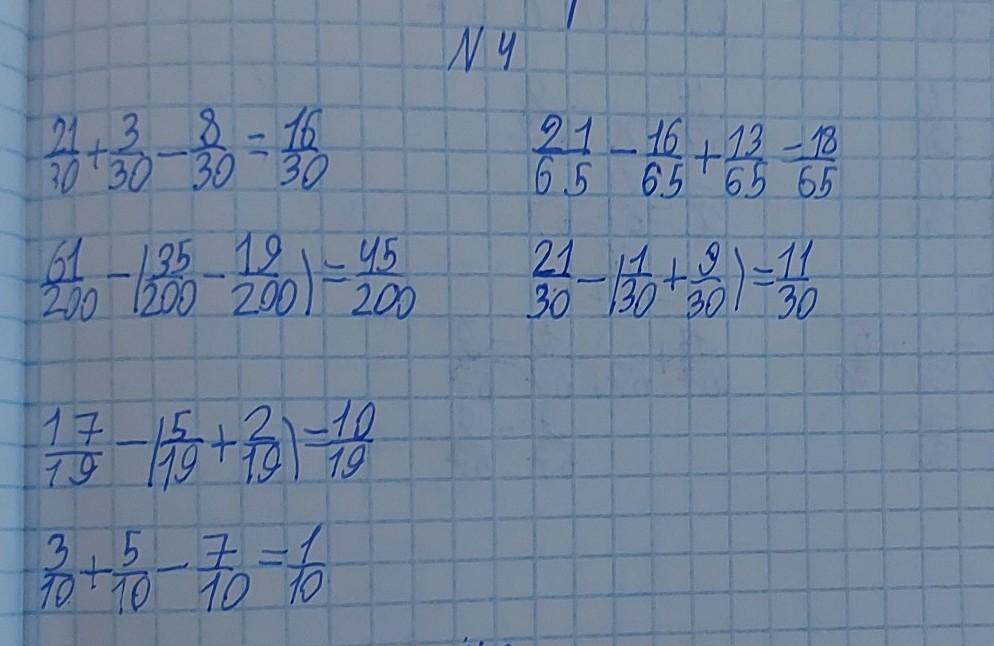 N 4
21/30 + 3/30 − 8/30 = 16/30
21/65 − 16/65 + 13/65 = 18/65
61/200 − (35/200 − 19/200) = 45/200
21/30 − (1/30 + 9/30) = 11/30
17/19 − (5/19 + 2/19) = 10/19
3/10 + 5/10 − 7/10 = 1/10